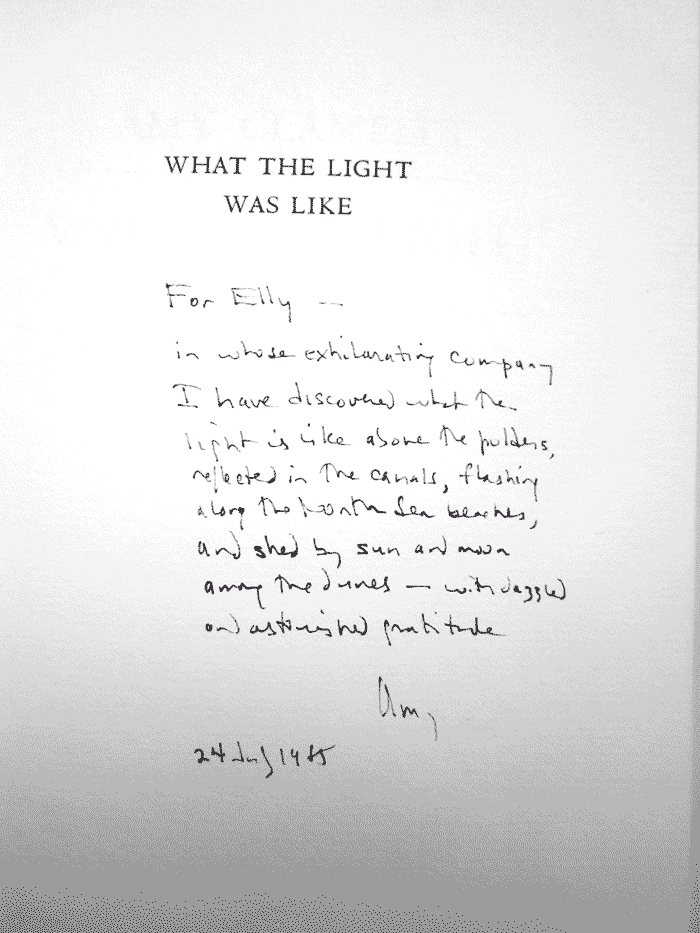 WHAT THE LIGHT
WAS LIKE
For Elly —
in whose exhilarating company
I have discovered what the
light is like above the polders,
reflected in the canals, flashing
along the North Sea beaches,
and shed by sun and moon
among the dunes — with dazzled
and astonished gratitude
Amy
24 July 1985